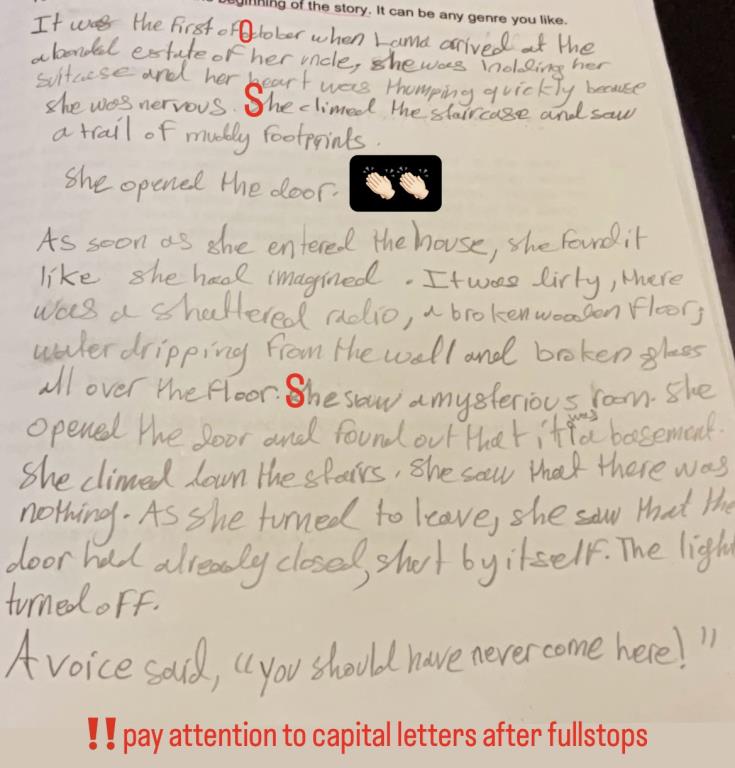 beginning of the story. It can be any genre you like.
It was the first of October when Lama arrived at the
abondal estate of her uncle, she was holding her
suitacse and her heart was thumping quickly because
she was nervous. She climed the staircase and saw
a trail of muddy footprints.
She opened the door. 👏🏻👏🏻
As soon as she entered the house, she found it
like she had imagined. It was dirty, there
was a shattered radio, a broken wooden floor,
water dripping from the wall and broken glass
all over the floor. She saw a mysterious room. She
opened the door and found out that it was a basement.
She climed down the stairs. She saw that there was
nothing. As she turned to leave, she saw that the
door had already closed, shut by itself. The light
turned off.
A voice said, "you should have never come here!"
‼️pay attention to capital letters after fullstops